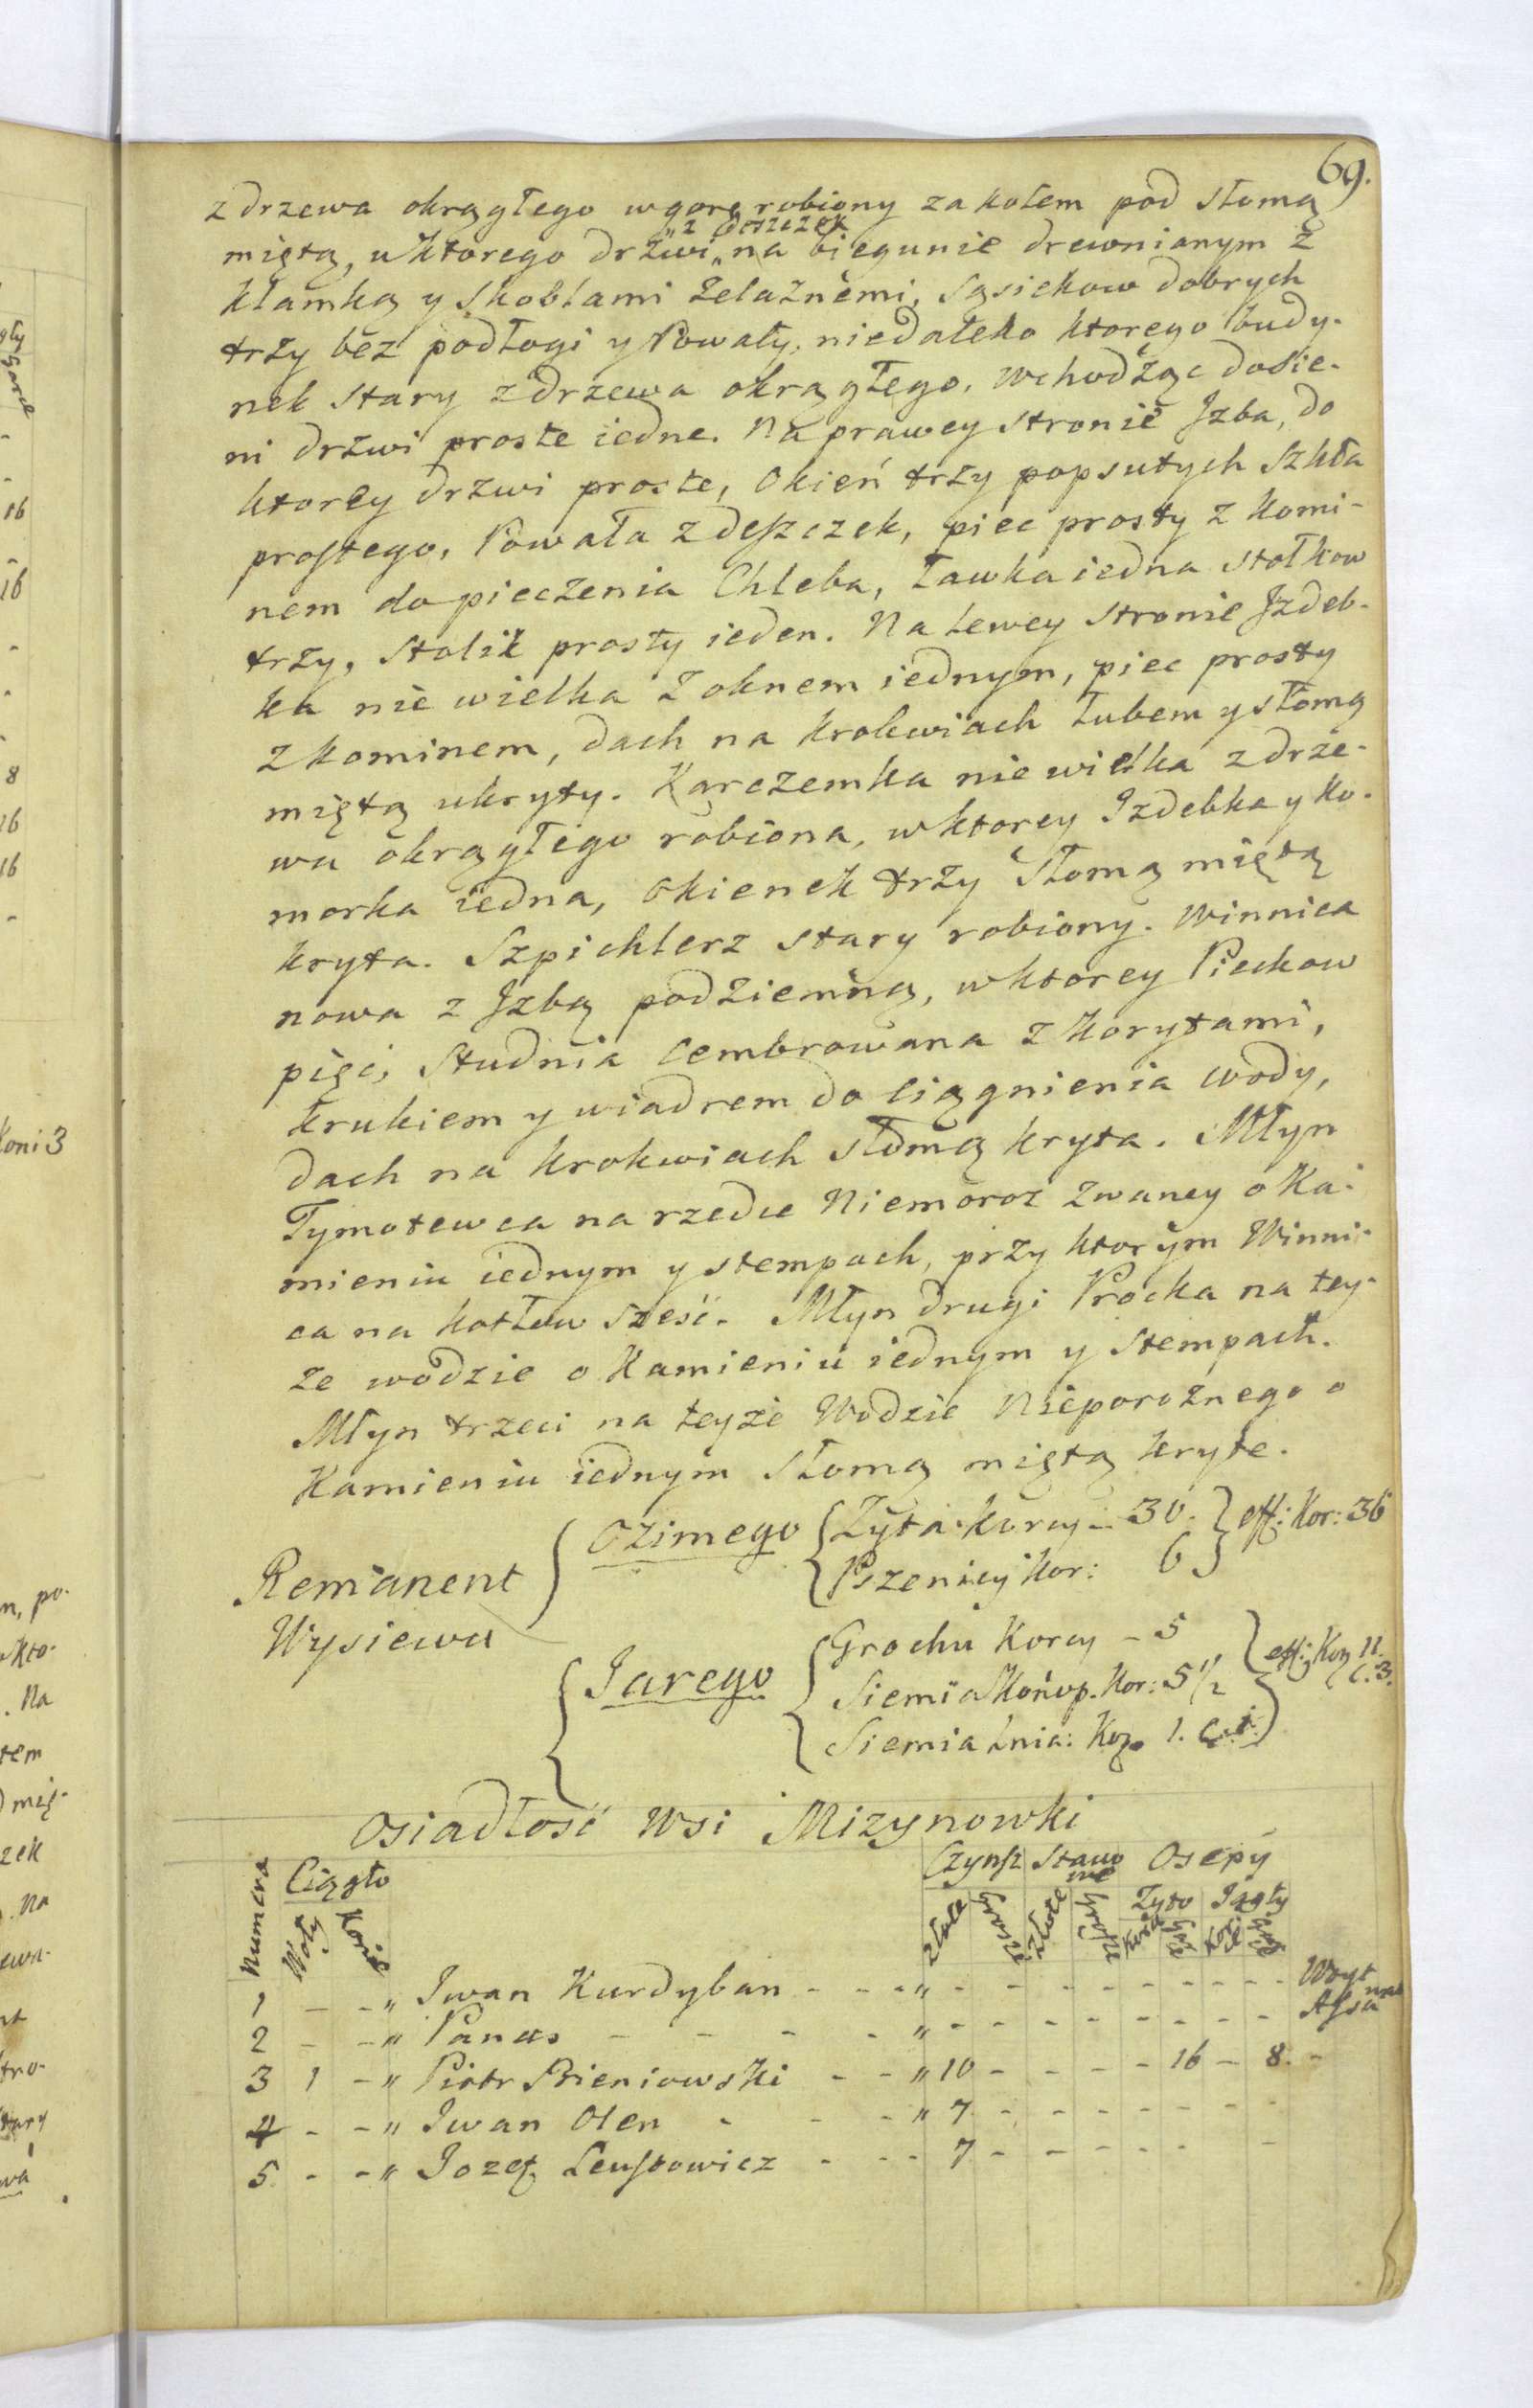 69.
z drzewa okrągłego w gorę robiony za kołem pod słomą
„z deszczek
miętą, u ktorego drzwi „ na biegunie drewnianym z
klamką y skoblami żelaznemi, sąsiekow dobrych
trzy bez podłogi y Powały, niedaleko ktorego budy-
nek stary z drzewa okrągłego, wchodząc do sie-
ni drzwi proste iedne. Na prawey stronie Jzba, do
ktorey drzwi proste, Okień trzy popsutych szkła
prostego, Powała z deszczek, piec prosty z komi-
nem do pieczenia Chleba, Ławka iedna stołkow
trzy, stolik prosty ieden. Na lewey stronie Jzdeb-
ka nie wielka z oknem iednym, piec prosty
z kominem, dach na krokwiach łubem y słomą
miętą ukryty. Karczemka nie wielka z drze-
wa okrągłego robiona, w ktorey Izdebka y ko-
morka iedna, okienek trzy słomą miętą
kryta. Szpichlerz stary robiony. Winnica
nowa z Jzbą podziemną, w ktorey Pieckow
pięć, studnia cembrowana z korytami,
krukiem y wiadrem do ciągnienia wody,
dach na krokwiach słomą kryta. Młyn
Tymotewca na rzedce Niemoroz zwaney o Ka-
mieniu iednym y stempach, przy ktorym Winni-
ca na kotłow sześć. Młyn drugi Procka na tey-
że wodzie o Kamieniu iednym y stempach.
Młyn trzeci na teyże Wodzie Nieporożnego o
Kamieniu iednym słomą miętą kryte.
Remanent
Wysiewu
Ozimego
Żyta: korcy - 30.
Pszenicy Kor: 6
eff: Kor: 36
Jarego
Grochu Korcy - 5
Siemia Konop. Kor: 5 1/2
Siemia Lnia: Kor. 1.
eff: Kor 11.
c. 3.
Osiadłość Wsi Mizynowki
Numera
Ciągło
Woły
Konie
Czynsz
Stawo
we
Osepy
Złote
Grosze
Złote
Grosze
Żyto
Jagły
1 - - „ Jwan Kurdyban - - - „ - - - - - - - - Woyt
2 - - „ Panas - - - - „ - - - - - - - -
3 1 - „ Piotr Bieniowski - - „ 10 - - - - 16 - 8. -
4 - - „ Jwan Olen - - - „ 7. - - - - - - -
5. - - „ Jozef Leustowicz - - - 7 - - - - - -